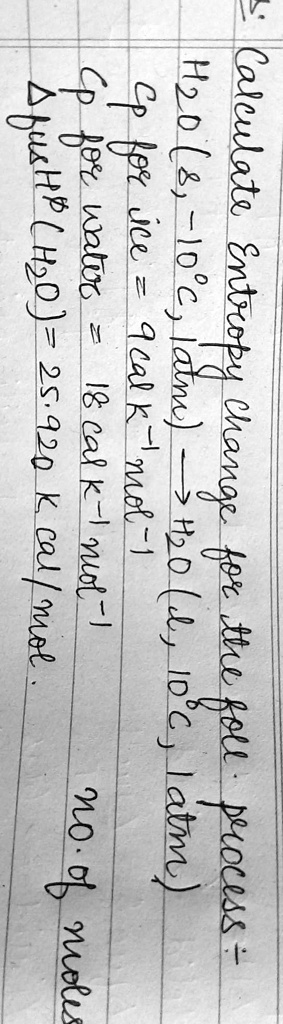 Calculate Entropy Change for the foll. process:-
H2O (s, -10°C, 1atm) → H2O (l, 10°C, 1atm)
Cp for ice = 9 cal K⁻¹ mol⁻¹
Cp for water = 18 cal K⁻¹ mol⁻¹
ΔfusHᶿ (H2O) = 25.920 K cal/mol. no. of moles